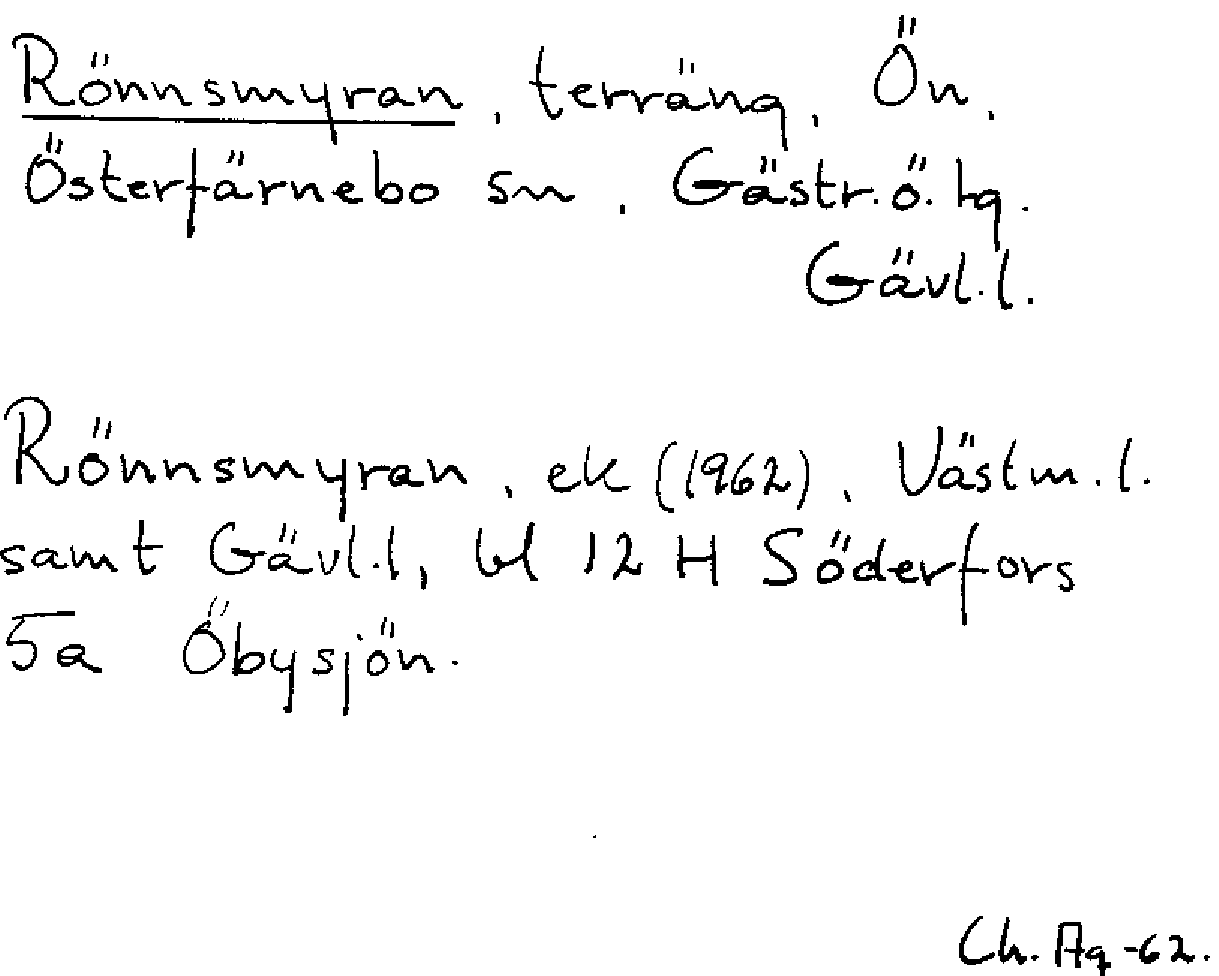 Rönnsmyran, terräng, Ön,
Österfärnebo sn, Gästr.ö.tg.
Gävl.l.
Rönnsmyran, ek (1962), Västm.l.
samt Gävl.l, bl 12 H Söderfors
5a Öbysjön.
Ch. Ag -62.